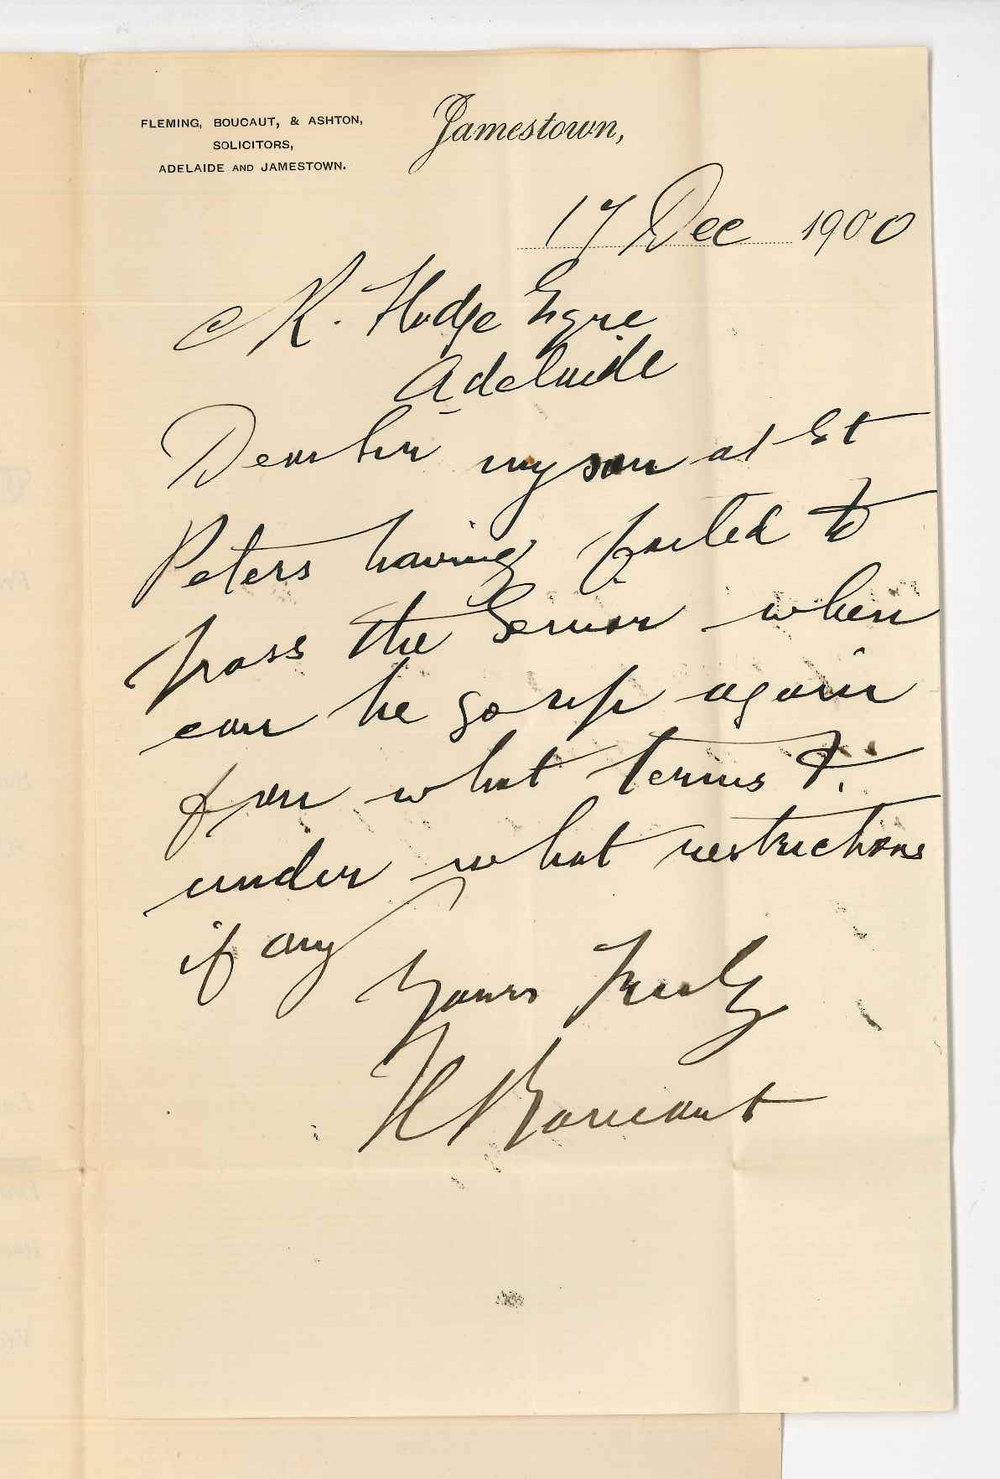 FLEMING, BOUCAUT, & ASHTON,
SOLICITORS,
ADELAIDE AND JAMESTOWN.
Jamestown,
17 Dec 1900
Hodge Esqre
Adelaide
Dear Sir my son at St
Peters having failed to
pass the Senior when
can he go up again
& on what terms &
under what restrictions
if any
Yours Truly
Boucaut